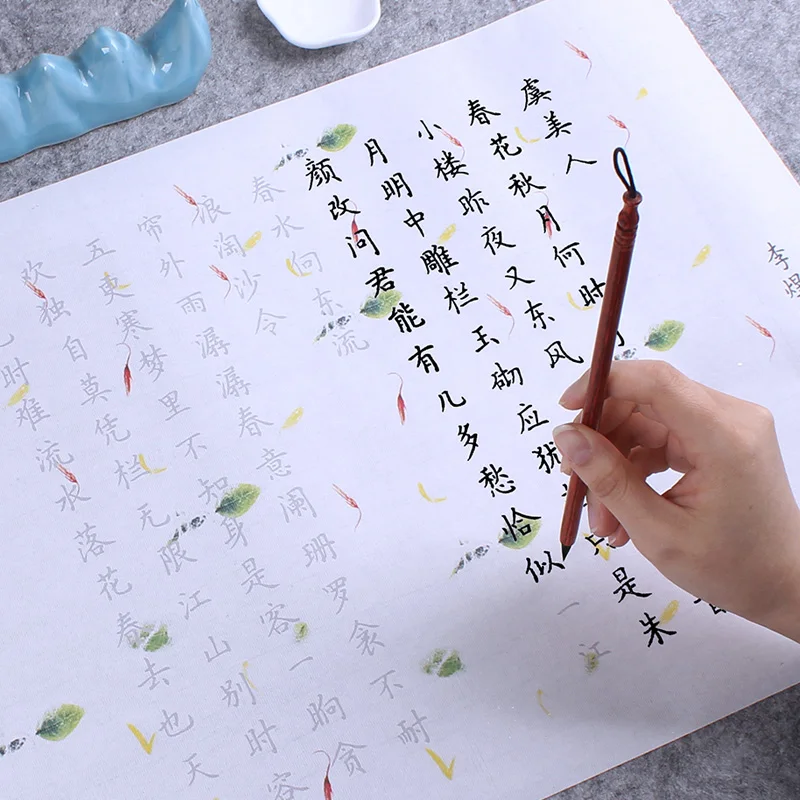 李煜
虞美人
春花秋月何时
小楼昨夜又东风
月明中雕栏玉砌应犹 只是朱
颜改问君能有几多愁恰似一江
春水向东流
浪淘沙令
帘外雨潺潺春意阑珊罗衾不耐
五更寒梦里不知身是客一晌贪
欢独自莫凭栏无限江山别时容
时难流水落花春去也天